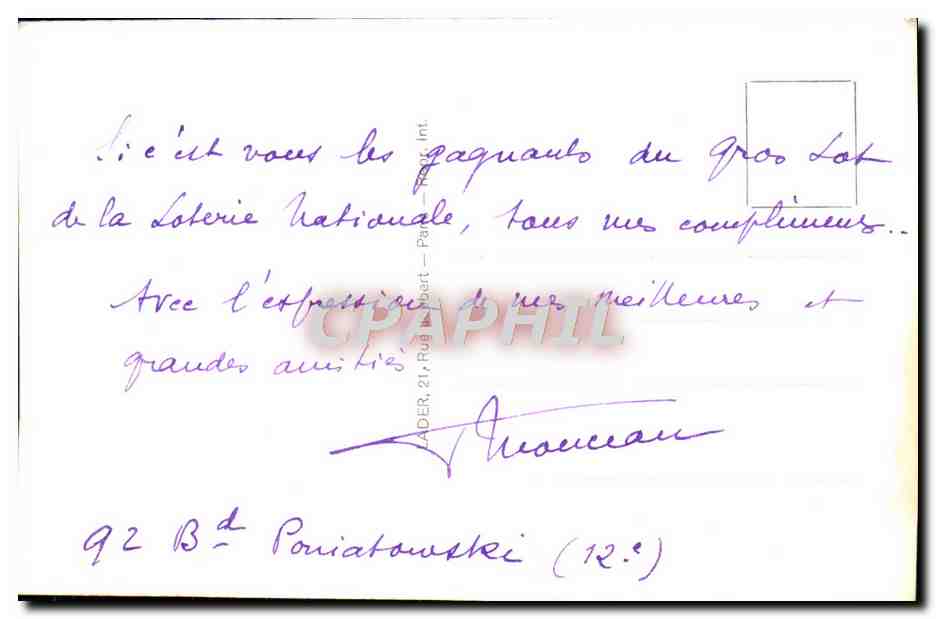 Si c'est vous les gagnants du Gros Lot
de la Loterie Nationale, tous mes compliments..
Avec l'expression de mes meilleures et
grandes amitiés
92 Bd Poniatowski (12e)
LADER, 21, Rue
CPAPHIL